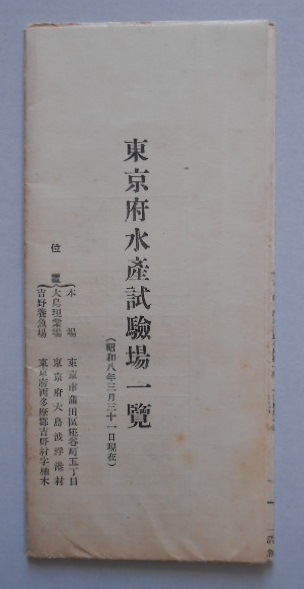 東京府水產試驗場一覽
(昭和八年三月三十一日現在)
位置
本場 東京市蒲田區糀谷町五丁目
大島現業場 東京府大島波浮港村
吉野養魚場 東京府西多摩郡吉野村字柚木